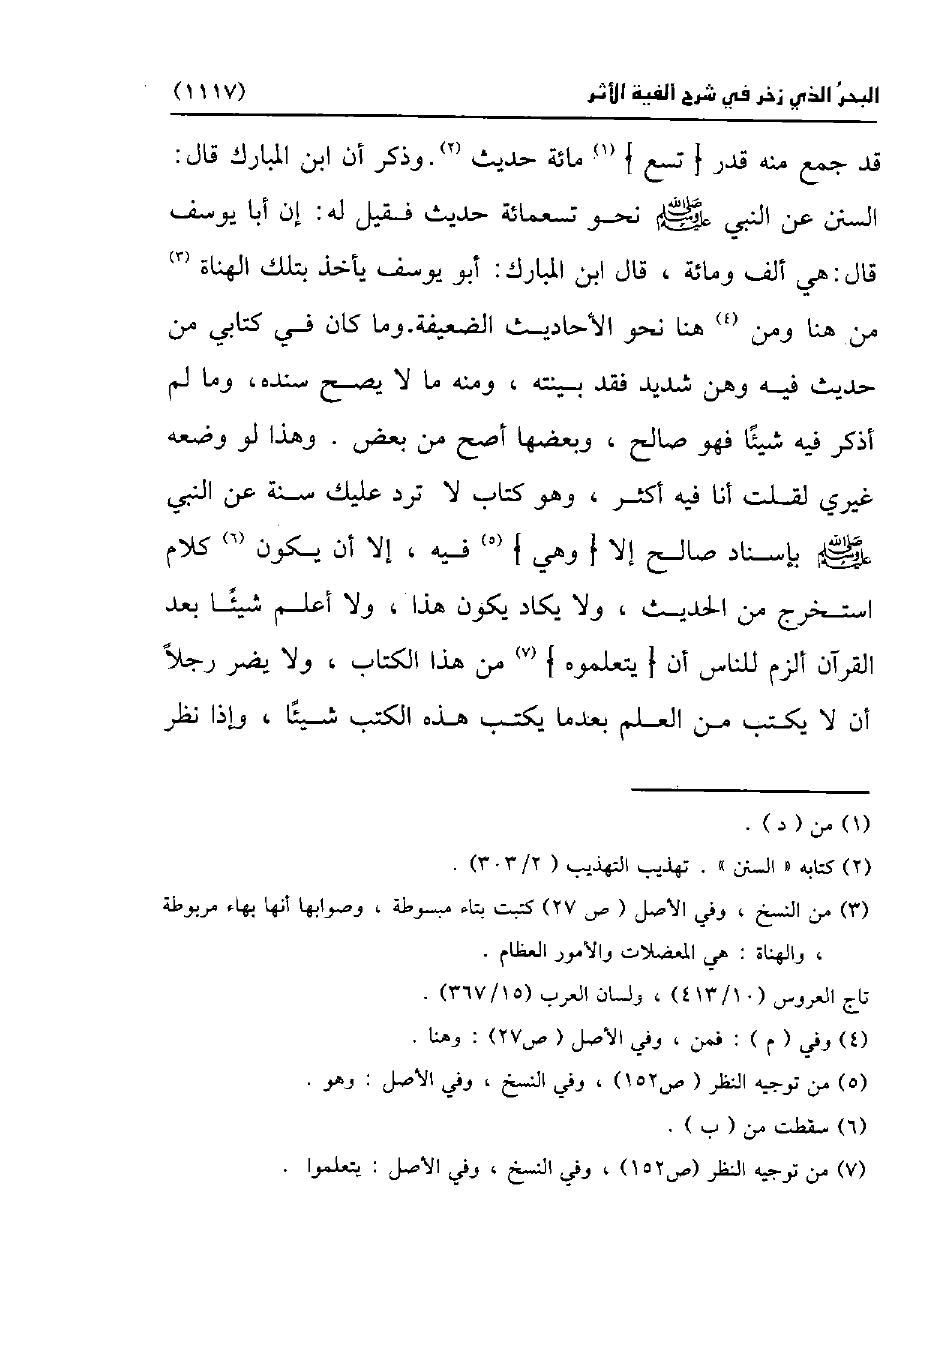 البحرُ الذي زخر في شرح ألفية الأثر (١١١٧)
قد جمع منه قدر { تسع } (١) مائة حديث (٢). وذكر أن ابن المبارك قال:
السنن عن النبي ﷺ نحو تسعمائة حديث فقيل له: إن أبا يوسف
قال: هي ألف ومائة ، قال ابن المبارك: أبو يوسف يأخذ بتلك الهناة (٣)
من هنا ومن (٤) هنا نحو الأحاديث الضعيفة.وما كان في كتابي من
حديث فيه وهن شديد فقد بينته ، ومنه ما لا يصح سنده، وما لم
أذكر فيه شيئًا فهو صالح ، وبعضها أصح من بعض . وهذا لو وضعه
غيري لقلت أنا فيه أكثر ، وهو كتاب لا ترد عليك سنة عن النبي
ﷺ بإسناد صالح إلا { وهي } (٥) فيه ، إلا أن يكون (٦) كلام
استخرج من الحديث ، ولا يكاد يكون هذا ، ولا أعلم شيئًا بعد
القرآن ألزم للناس أن { يتعلموه } (٧) من هذا الكتاب ، ولا يضر رجلاً
أن لا يكتب من العلم بعدما يكتب هذه الكتب شيئًا ، وإذا نظر
(١) من ( د ) .
(٢) كتابه « السنن » . تهذيب التهذيب ( ٣٠٣/٢) .
(٣) من النسخ ، وفي الأصل ( ص ٢٧) كتبت بتاء مبسوطة ، وصوابها أنها بهاء مربوطة
، والهناة : هي المعضلات والأمور العظام .
تاج العروس (٤١٣/١٠) ، ولسان العرب (٣٦٧/١٥) .
(٤) وفي ( م ) : فمن ، وفي الأصل ( ص٢٧) : وهنا .
(٥) من توجيه النظر ( ص١٥٢) ، وفي النسخ ، وفي الأصل : وهو .
(٦) سقطت من ( ب ) .
(٧) من توجيه النظر (ص١٥٢) ، وفي النسخ ، وفي الأصل : يتعلموا .